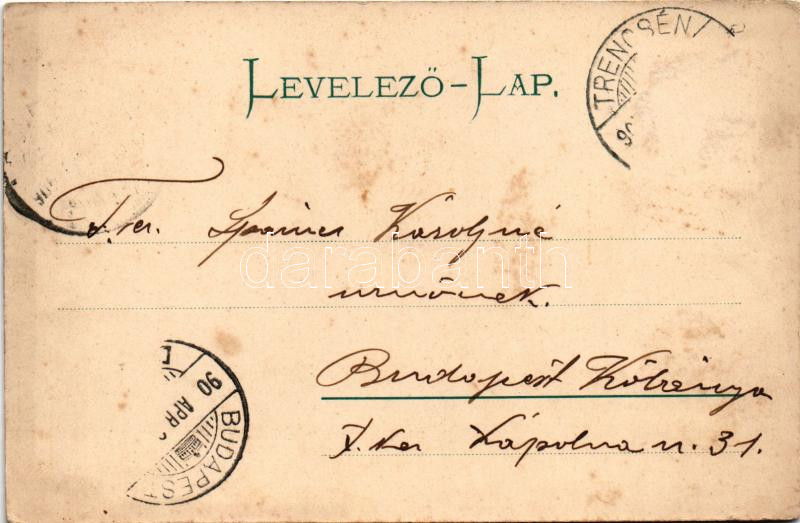 LEVELEZŐ-LAP.
TRENCSÉN
T. cz. Károlyné
úrnőnek.
darabanth
Budapest Kőbánya
X. ker Kápolna u. 31.
90 APR
BUDAPEST